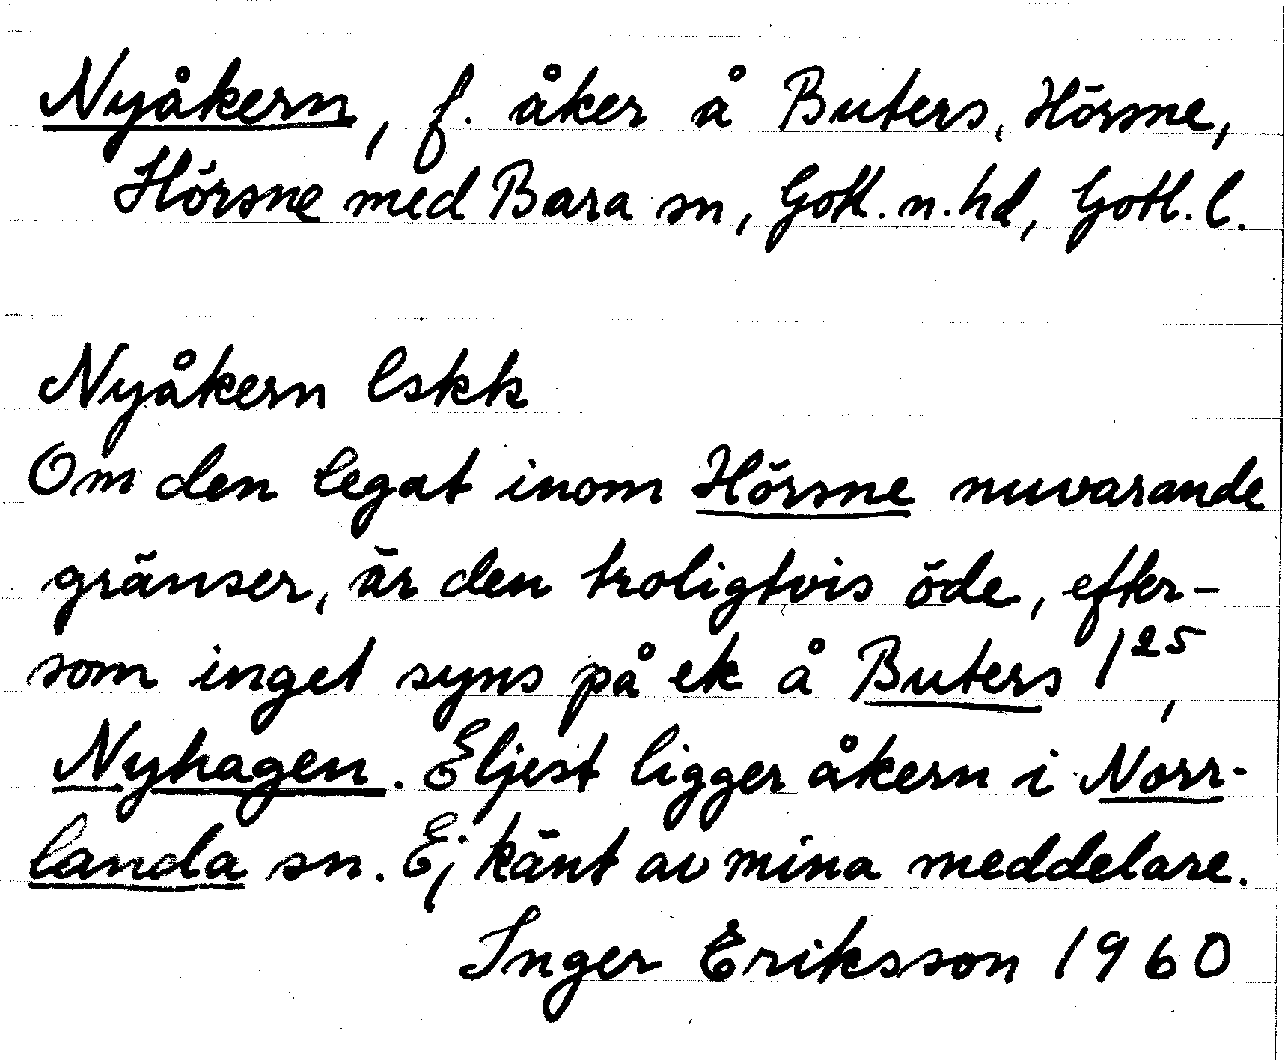 Nyåkern, f. åker å Buters, Hörsne,
Hörsne med Bara sn, Gotl. n. hd, Gotl. l.
Nyåkern lskk
Om den legat inom Hörsne nuvarande
gränser, är den troligtvis öde, efter-
som inget syns på ek å Buters 1²⁵,
Nyhagen. Eljest ligger åkern i Norr-
landa sn. Ej känt av mina meddelare.
Inger Eriksson 1960